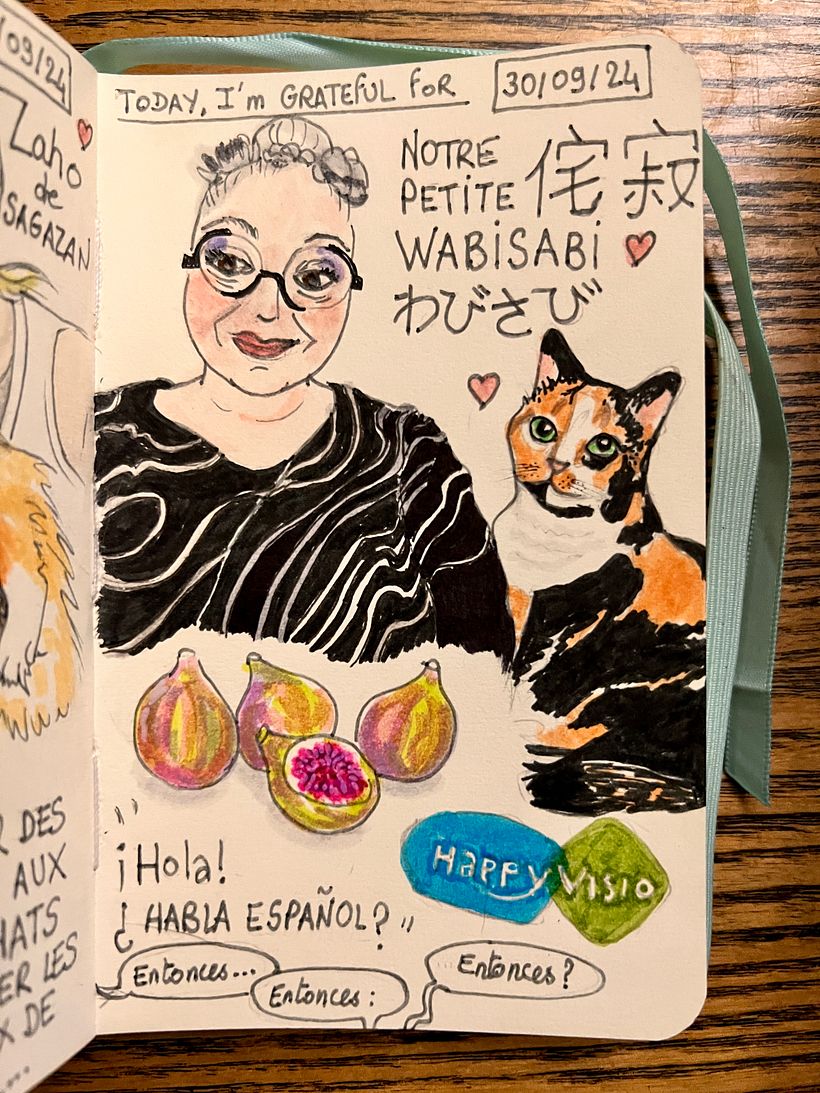 /09/24
Zaho
de
SAGAZAN
DES
AUX
DE
TODAY, I'm GRATEFUL FOR
30/09/24
NOTRE
PETITE
侘寂
WABISABI
わびさび
"¡Hola!
¿HABLA ESPAÑOL?"
Happy Visio
Entonces...
Entonces :
Entonces ?